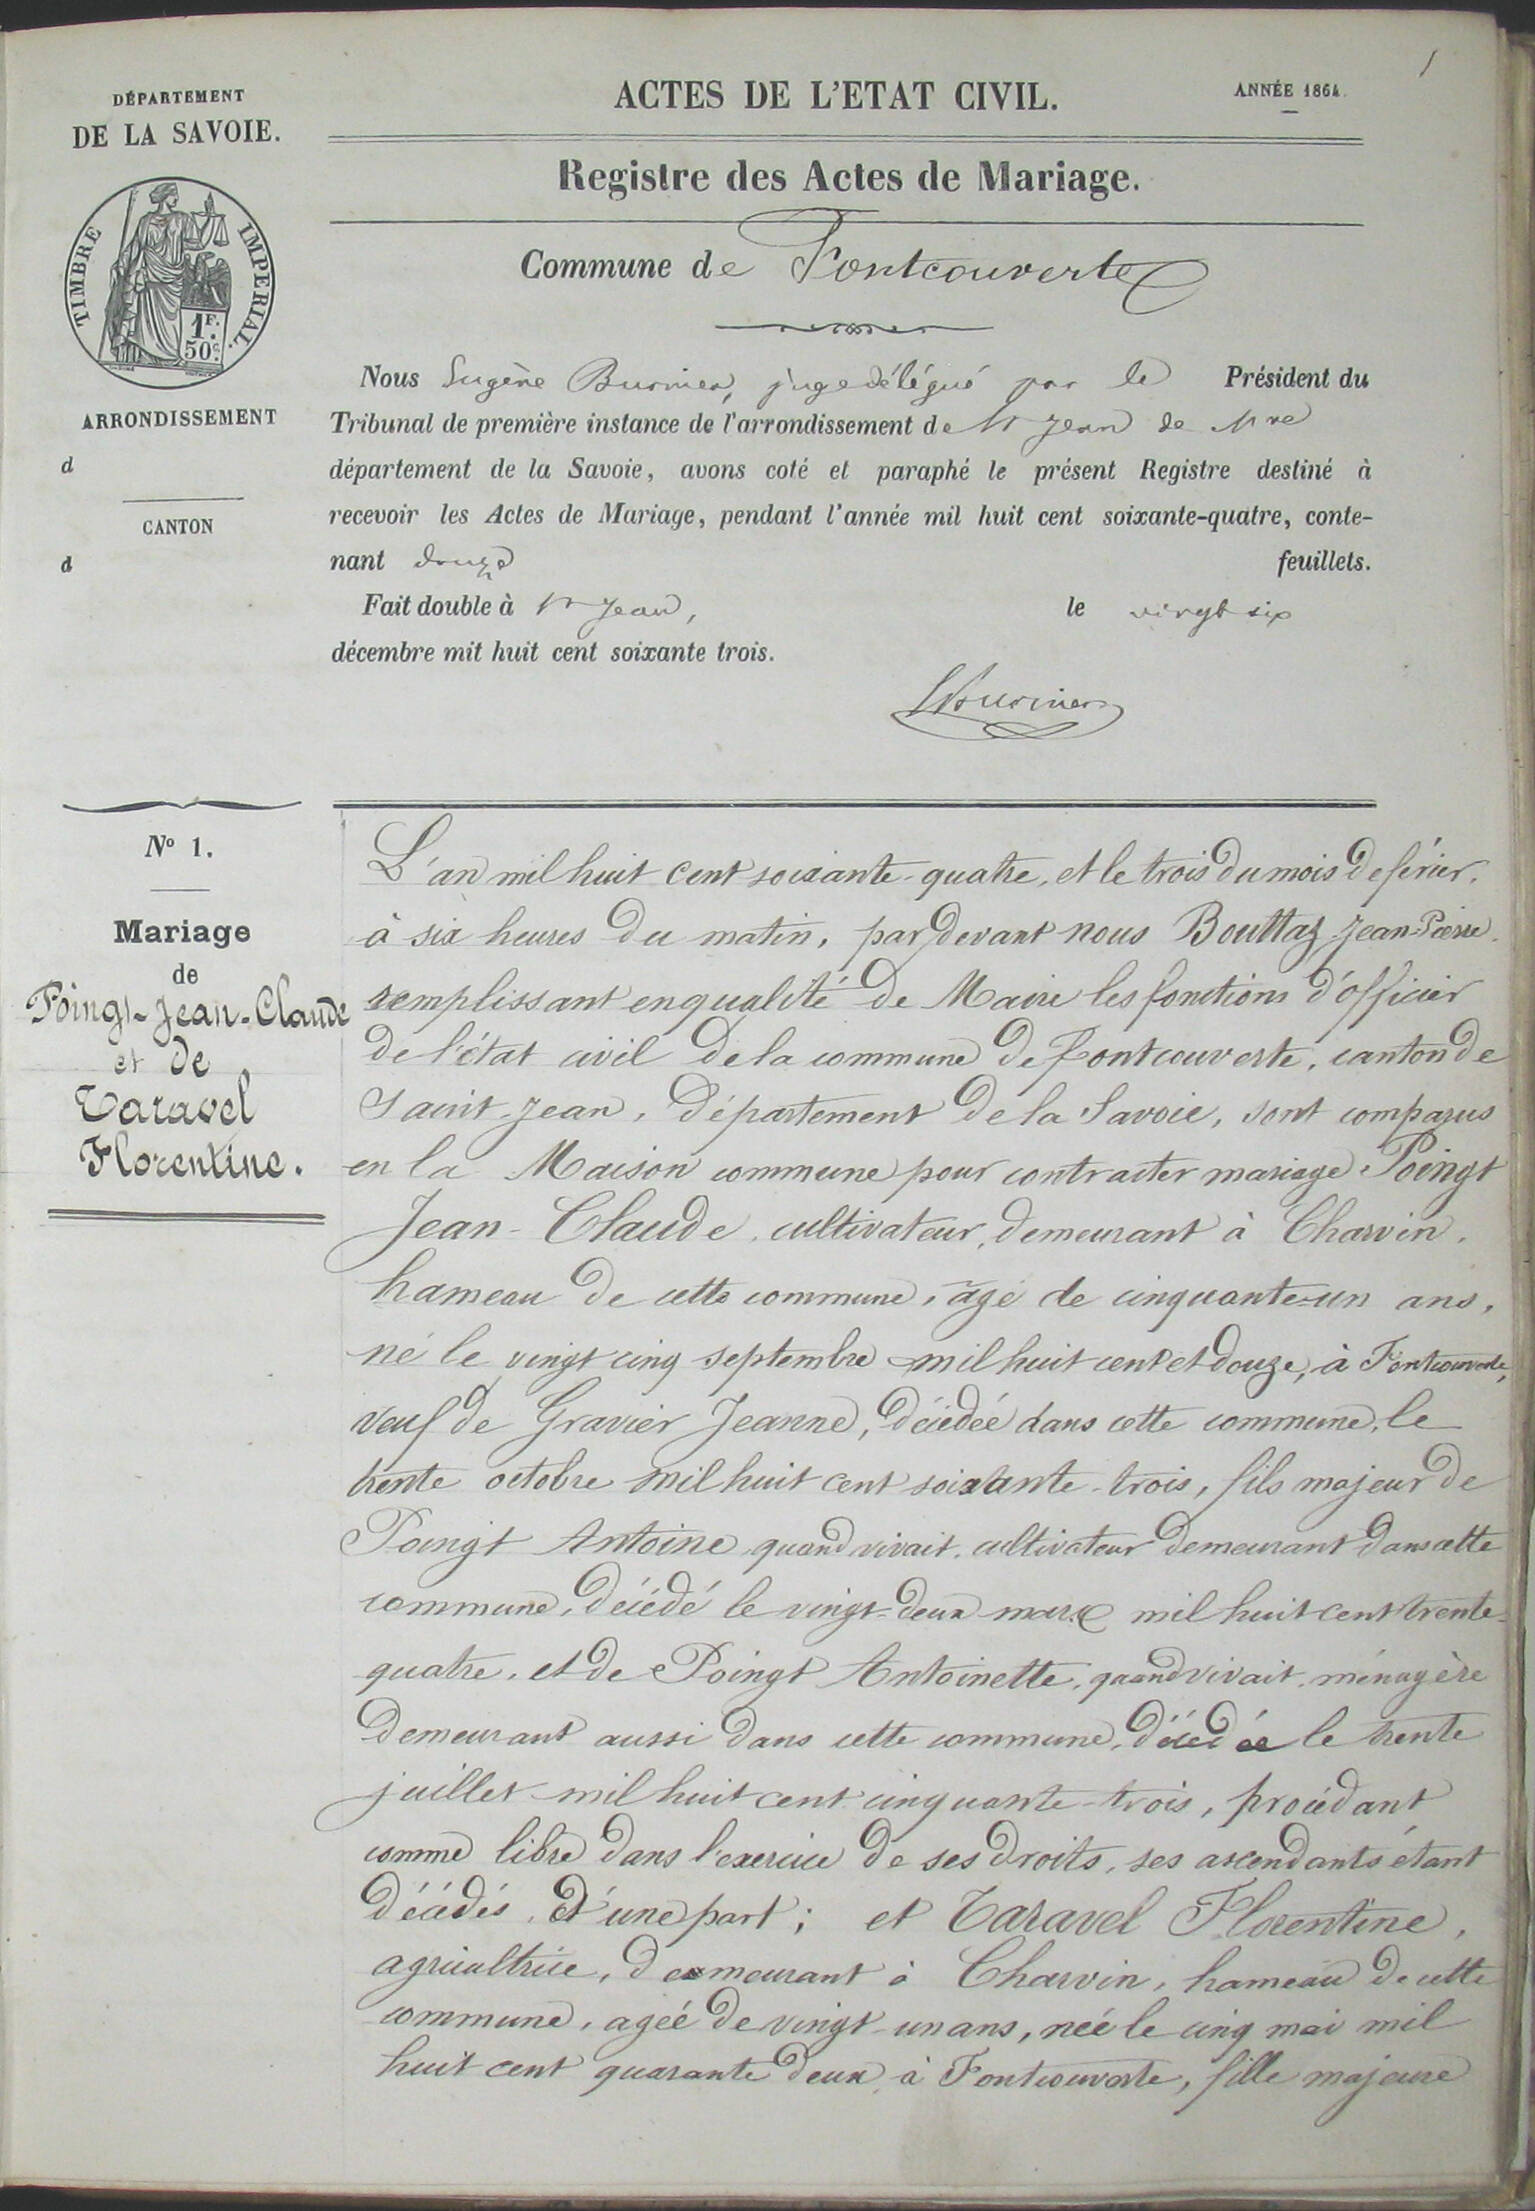 1
DÉPARTEMENT
DE LA SAVOIE.
ACTES DE L'ETAT CIVIL.
ANNÉE 1864.
Registre des Actes de Mariage.
TIMBRE IMPERIAL.
1F.
50c.
Commune de Fontcouverte
ARRONDISSEMENT
d
CANTON
d
Nous Eugène Burnier, juge délégué par le Président du
Tribunal de première instance de l'arrondissement de St Jean de Mne
département de la Savoie, avons coté et paraphé le présent Registre destiné à
recevoir les Actes de Mariage, pendant l'année mil huit cent soixante-quatre, conte-
nant douze feuillets.
Fait double à St Jean, le vingt six
décembre mit huit cent soixante trois.
EBurnier
No 1.
Mariage
de
Poingt-Jean-Claude
et de
Taravel
Florentine.
L'an mil huit cent soixante-quatre, et le trois du mois de férier,
à six heures du matin, pardevant nous Bouttaz Jean-Pierre
remplissant en qualité de Maire les fonctions d'officier
de l'état civil de la commune de fontcouverte, canton de
Saint-Jean, Département de la Savoie, sont comparus
en la Maison commune pour contracter mariage Poingt
Jean-Claude, cultivateur, demeurant à Charvin,
hameau de cette commune, âgé de cinquante-un ans,
né le vingt cinq septembre mil huit cent et douze, à Fontcouverte,
veuf de Gravier Jeanne, décédée dans cette commune, le
trente octobre mil huit cent soixante-trois, fils majeur de
Poingt Antoine quand vivait, cultivateur demeurant dans cette
commune, décédé le vingt-deux mars mil huit cent trente-
quatre, et de Poingt Antoinette, quand vivait, ménagère
demeurant aussi dans cette commune, décédée le trente
juillet mil huit cent cinquante-trois, procédant
comme libre dans l'exercice de ses droits, ses ascendants étant
décédés, d'une part; et Taravel Florentine,
agricultrice, demeurant à Charvin, hameau de cette
commune, agéé de vingt-un ans, néé le cinq mai mil
huit cent quarante deux, à Fontcouverte, fille majeure